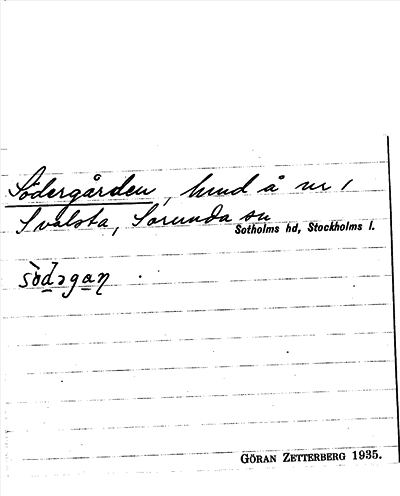 Södergården, hmd å nr 1
Svalsta, Sorunda sn
Sotholms hd, Stockholms l.
GÖRAN ZETTERBERG 1935.